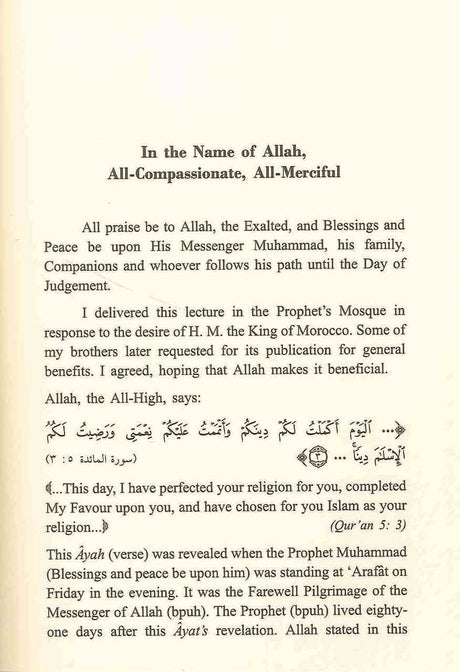 In the Name of Allah,
All-Compassionate, All-Merciful
All praise be to Allah, the Exalted, and Blessings and
Peace be upon His Messenger Muhammad, his family,
Companions and whoever follows his path until the Day of
Judgement.
I delivered this lecture in the Prophet's Mosque in
response to the desire of H. M. the King of Morocco. Some of
my brothers later requested for its publication for general
benefits. I agreed, hoping that Allah makes it beneficial.
Allah, the All-High, says:
﴿... ٱلۡيَوۡمَ أَكۡمَلۡتُ لَكُمۡ دِينَكُمۡ وَأَتۡمَمۡتُ عَلَيۡكُمۡ نِعۡمَتِى وَرَضِيتُ لَكُمُ
ٱلۡإِسۡلَٰمَ دِينٗاۚ ... ٣﴾ (سورة المائدة ٥ : ٣)
﴾...This day, I have perfected your religion for you, completed
My Favour upon you, and have chosen for you Islam as your
religion...﴿ (Qur'an 5: 3)
This Âyah (verse) was revealed when the Prophet Muhammad
(Blessings and peace be upon him) was standing at ‘Arafât on
Friday in the evening. It was the Farewell Pilgrimage of the
Messenger of Allah (bpuh). The Prophet (bpuh) lived eighty-
one days after this Âyat's revelation. Allah stated in this